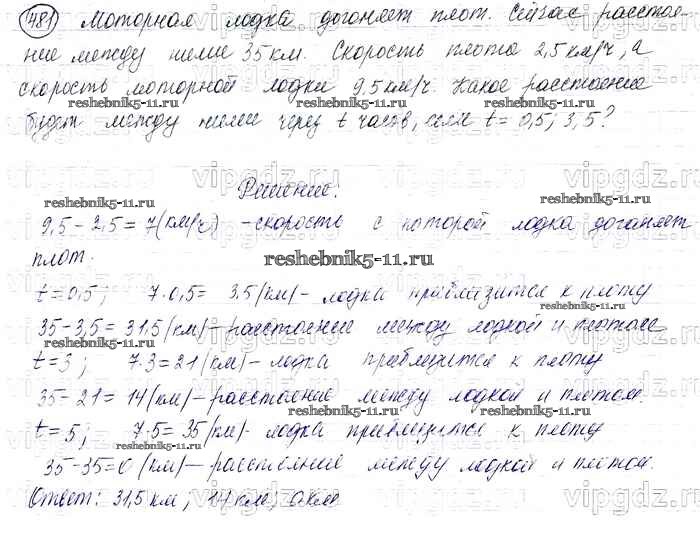 481 Моторная лодка догоняет плот. Сейчас расстоя-
ние между ними 35 км. Скорость плота 2,5 км/ч, а
скорость моторной лодки 9,5 км/ч. Какое расстояние
reshebnik5-11.ru reshebnik5-11.ru
будет между ними через t часов, если t = 0,5; 3, 5?
Решение:
reshebnik5-11.ru reshebnik5-11.ru
9,5 - 2,5 = 7 (км/ч) - скорость с которой лодка догоняет
плот.
reshebnik5-11.ru
t = 0,5; 7·0,5 = 3.5 (км) - лодка приблизится к плоту
35 - 3,5 = 31.5 (км) - расстояние между лодкой и плотом
t = 3; 7·3 = 21 (км) - лодка приблизится к плоту
35 - 21 = 14 (км) - расстояние между лодкой и плотом.
reshebnik5-11.ru
t = 5; 7·5 = 35 (км) - лодка приблизится к плоту
reshebnik5-11.ru
35 - 35 = 0 (км) - расстояние между лодкой и плотом.
Ответ: 31,5 км, 14 км, 0 км
reshebnik5-11.ru
vipgdz.ru